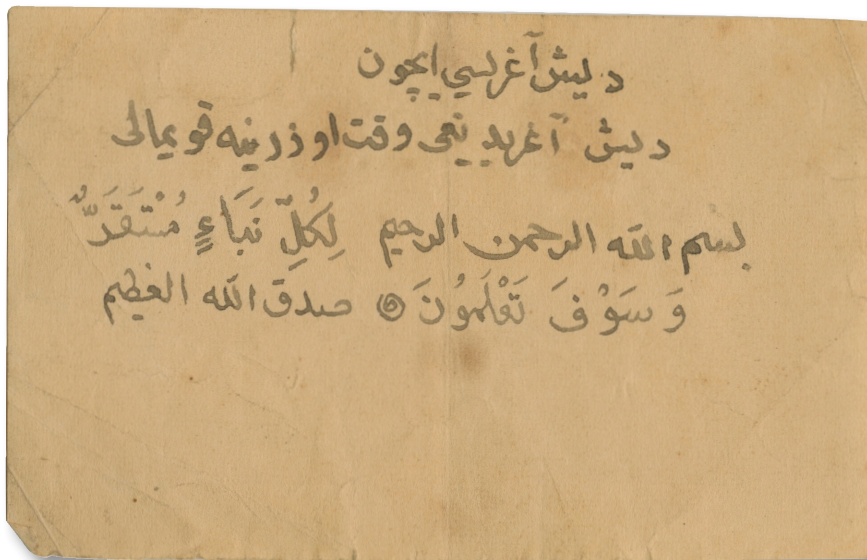 دیش آغریسی ایچون
دیش آغریدیغی وقت اوزرینه قویمالی
بسم الله الرحمن الرحیم لِكُلِّ نَبَاءٍ مُسْتَقَرٌّ
وَ سَوْفَ تَعْلَمُونَ صدق الله العظیم